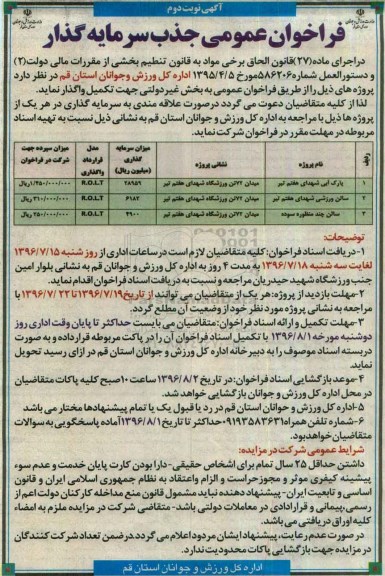 آگهی نوبت دوم
فراخوان عمومی جذب سرمایه گذار
دراجرای ماده(۲۷)قانون الحاق برخی مواد به قانون تنظیم بخشی از مقررات مالی دولت(۲)
و دستورالعمل شماره۵۸۶۲۰۶مورخ۱۳۹۵/۴/۵ اداره کل ورزش وجوانان استان قم در نظر دارد
پروژه های ذیل را از طریق فراخوان عمومی به بخش غیردولتی جهت تکمیل واگذار نماید.
لذا از کلیه متقاضیان دعوت می گردد درصورت علاقه مندی به سرمایه گذاری در هر یک از
پروژه ها ذیل با مراجعه به اداره کل ورزش و جوانان استان قم به نشانی ذیل نسبت به تهیه اسناد
مربوطه در مهلت مقرر در فراخوان شرکت نماید.
ردیف نام پروژه نشانی پروژه میزان سرمایه گذاری (میلیون ریال) مدل قرارداد واگذاری میزان سپرده جهت شرکت در فراخوان
۱ پارک آبی شهدای هفتم تیر میدان ۷۲تن ورزشگاه شهدای هفتم تیر ۲۸۹۵۹ R.O.L.T ۱/۴۵۰/۰۰۰/۰۰۰ریال
۲ سالن ورزشی شهدای هفتم تیر میدان ۷۲تن ورزشگاه شهدای هفتم تیر ۶۱۸۲ R.O.L.T ۳۱۰/۰۰۰/۰۰۰ریال
۳ سالن چند منظوره سوده میدان ۷۲تن ورزشگاه شهدای هفتم تیر ۴۹۰۰ R.O.L.T ۲۵۰/۰۰۰/۰۰۰ریال
توضیحات:
۱-دریافت اسناد فراخوان:کلیه متقاضیان لازم است در ساعات اداری از روز شنبه ۱۳۹۶/۷/۱۵
لغایت سه شنبه ۱۳۹۶/۷/۱۸ به مدت ۴ روز به اداره کل ورزش و جوانان قم به نشانی بلوار امین
جنب ورزشگاه شهید حیدریان مراجعه و نسبت به دریافت اسناد فراخوان اقدام نماید.
۲-مهلت بازدید از پروژه: هر یک از متقاضیان می توانند از تاریخ ۱۳۹۶/۷/۱۹ تا ۱۳۹۶/۷/۲۲ با
مراجعه به نشانی پروژه مورد نظر خود از وضعیت آن مطلع گردد.
۳-مهلت تکمیل و ارائه اسناد فراخوان: متقاضیان می بایست حداکثر تا پایان وقت اداری روز
دوشنبه مورخه ۱۳۹۶/۸/۱ با تکمیل اسناد فراخوان آن را در پاکت مربوطه قرارداده و به صورت
دربسته اسناد موصوف را به دبیرخانه اداره کل ورزش و جوانان استان قم در ازای رسید تحویل
نماید
۴-موعد بازگشایی اسناد فراخوان:در تاریخ ۱۳۹۶/۸/۲ ساعت ۱۰صبح کلیه پاکات متقاضیان
در محل اداره کل ورزش و جوانان بازگشایی خواهد شد.
۵-اداره کل ورزش و جوانان استان قم در رد یا قبول یک یا تمام پیشنهادها مختار می باشد
۶-شماره تلفن همراه ۰۹۱۹۳۵۸۳۶۳۱ حداکثر تا تاریخ ۱۳۹۶/۸/۱ آماده پاسخگویی به سوالات
متقاضیان خواهد بود.
شرایط عمومی شرکت در مزایده:
داشتن حداقل ۲۵ سال تمام برای اشخاص حقیقی-دارا بودن کارت پایان خدمت و عدم سوء
پیشینه کیفری موثر و مجوز حراست و الزام واعتقاد به نظام جمهوری اسلامی ایران و قانون
اساسی و تابعیت ایران-پیشنهاد دهنده نباید مشمول قانون منع مداخله کارکنان دولت اعم از
رسمی،پیمانی و قراردادی در معاملات دولتی باشد-متقاضی شرکت در مزایده ملزم به امضاء
کلیه اوراق دریافتی می باشد.
در صورت عدم رعایت، پیشنهاد ایشان مردود اعلام می گردد.درضمن تعداد شرکت کنندگان
در مزایده جهت بازگشایی پاکات محدودیت ندارد.
اداره کل ورزش و جوانان استان قم